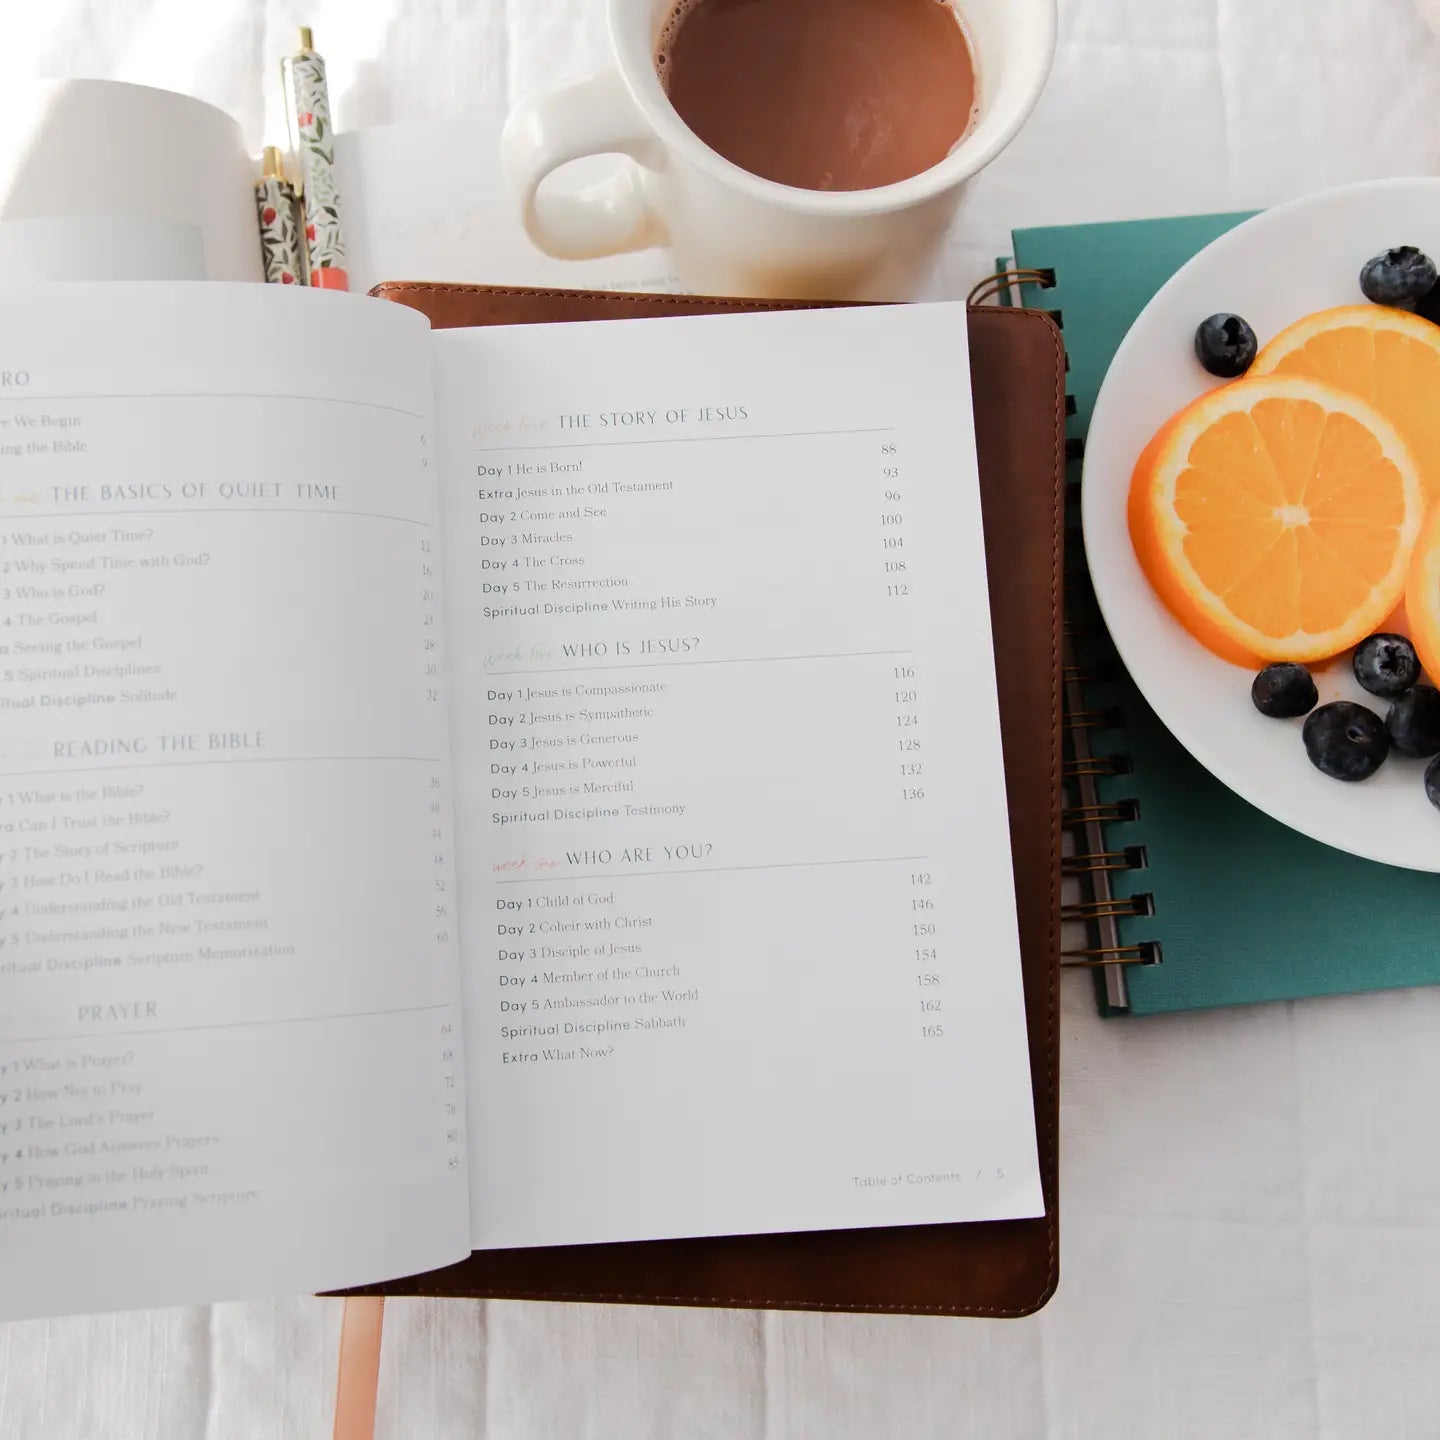 RO
re We Begin 6
ing the Bible 9
THE BASICS OF QUIET TIME
1 What is Quiet Time? 12
2 Why Spend Time with God? 16
3 Who is God? 20
4 The Gospel 24
a Seeing the Gospel 28
5 Spiritual Disciplines 30
itual Discipline Solitude 32
READING THE BIBLE
y 1 What is the Bible? 36
ra Can I Trust the Bible? 40
y 2 The Story of Scripture 44
y 3 How Do I Read the Bible? 48
y 4 Understanding the Old Testament 52
y 5 Understanding the New Testament 56
iritual Discipline Scripture Memorization 60
PRAYER
y 1 What is Prayer? 64
y 2 How Not to Pray 68
y 3 The Lord's Prayer 72
y 4 How God Answers Prayers 76
y 5 Praying in the Holy Spirit 80
iritual Discipline Praying Scripture 85
week four THE STORY OF JESUS
Day 1 He is Born! 88
Extra Jesus in the Old Testament 93
Day 2 Come and See 96
Day 3 Miracles 100
Day 4 The Cross 104
Day 5 The Resurrection 108
Spiritual Discipline Writing His Story 112
week five WHO IS JESUS?
Day 1 Jesus is Compassionate 116
Day 2 Jesus is Sympathetic 120
Day 3 Jesus is Generous 124
Day 4 Jesus is Powerful 128
Day 5 Jesus is Merciful 132
Spiritual Discipline Testimony 136
week six WHO ARE YOU?
Day 1 Child of God 142
Day 2 Coheir with Christ 146
Day 3 Disciple of Jesus 150
Day 4 Member of the Church 154
Day 5 Ambassador to the World 158
Spiritual Discipline Sabbath 162
Extra What Now? 165
Table of Contents / 5